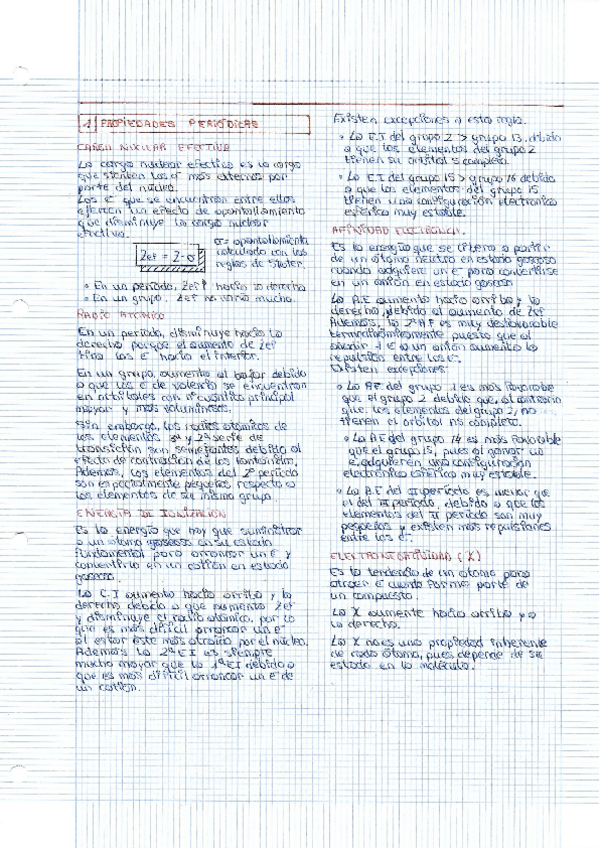 1 PROPIEDADES PERIÓDICAS
CARGA NUCLEAR EFECTIVA
La carga nuclear efectiva es la carga
que sienten los e⁻ más externos por
parte del núcleo.
Los e⁻ que se encuentran entre ellos
ejercen un efecto de apantallamiento
que disminuye la carga nuclear
efectiva.
Zef = Z - σ
σ = apantallamiento
calculado con las
reglas de Slater.
• En un período, Zef↑ hacia la derecha
• En un grupo, Zef no varía mucho.
RADIO ATÓMICO
En un período, disminuye hacia la
derecha porque el aumento de Zef
tira los e⁻ hacia el interior.
En un grupo, aumenta al bajar debido
a que los e⁻ de valencia se encuentran
en orbitales con nº cuántico principal
mayor y más voluminosos.
Sin embargo, los radios atómicos de
los elementos 3ª y 2ª serie de
transición son semejantes debido al
efecto de contracción de los lantánidos.
Además, los elementos del 2º período
son especialmente pequeños respecto a
los elementos de su mismo grupo.
ENERGÍA DE IONIZACIÓN
Es la energía que hay que suministrar
a un átomo gaseoso en su estado
fundamental para arrancar un e⁻ y
convertirlo en un catión en estado
gaseoso.
La E.I aumenta hacia arriba y la
derecha debido a que aumenta Zef
y disminuye el radio atómico, por lo
que es más difícil arrancar un e⁻
al estar éste más atraído por el núcleo.
Además la 2ª EI es siempre
mucho mayor que la 1ª EI debido a
que es más difícil arrancar un e⁻ de
un catión.
Existen excepciones a esta regla.
• La E.I del grupo 2 > grupo 13 debido
a que los elementos del grupo 2
tienen su orbital s completo.
• La E.I del grupo 15 > grupo 16 debido
a que los elementos del grupo 15
tienen una configuración electrónica
esférica muy estable.
AFINIDAD ELECTRÓNICA.
Es la energía que se libera a partir
de un átomo neutro en estado gaseoso
cuando adquiere un e⁻ para convertirse
en un anión en estado gaseoso
La A.E aumenta hacia arriba y la
derecha, debido al aumento de Zef
Además, la 2ª A.E es muy desfavorable
termodinámicamente puesto que al
añadir 1 e⁻ a un anión aumenta la
repulsión entre los e⁻.
Existen excepciones:
• La AE del grupo 1 es más favorable
que el grupo 2 debido que, al contrario
que los elementos del grupo 2, no
tienen el orbital ns completo.
• La AE del grupo 14 es más favorable
que el grupo 15, pues al ganar un
e⁻, adquieren una configuración
electrónica esférica muy estable.
• La A.E del II período es menor que
el del III período, debido a que los
elementos del II período son muy
pequeños y existen más repulsiones
entre los e⁻.
ELECTRONEGATIVIDAD (X)
Es la tendencia de un átomo para
atraer e⁻ cuando forma parte de
un compuesto.
La X aumenta hacia arriba y a
la derecha.
La X no es una propiedad inherente
de cada átomo, pues depende de su
estado en la molécula.